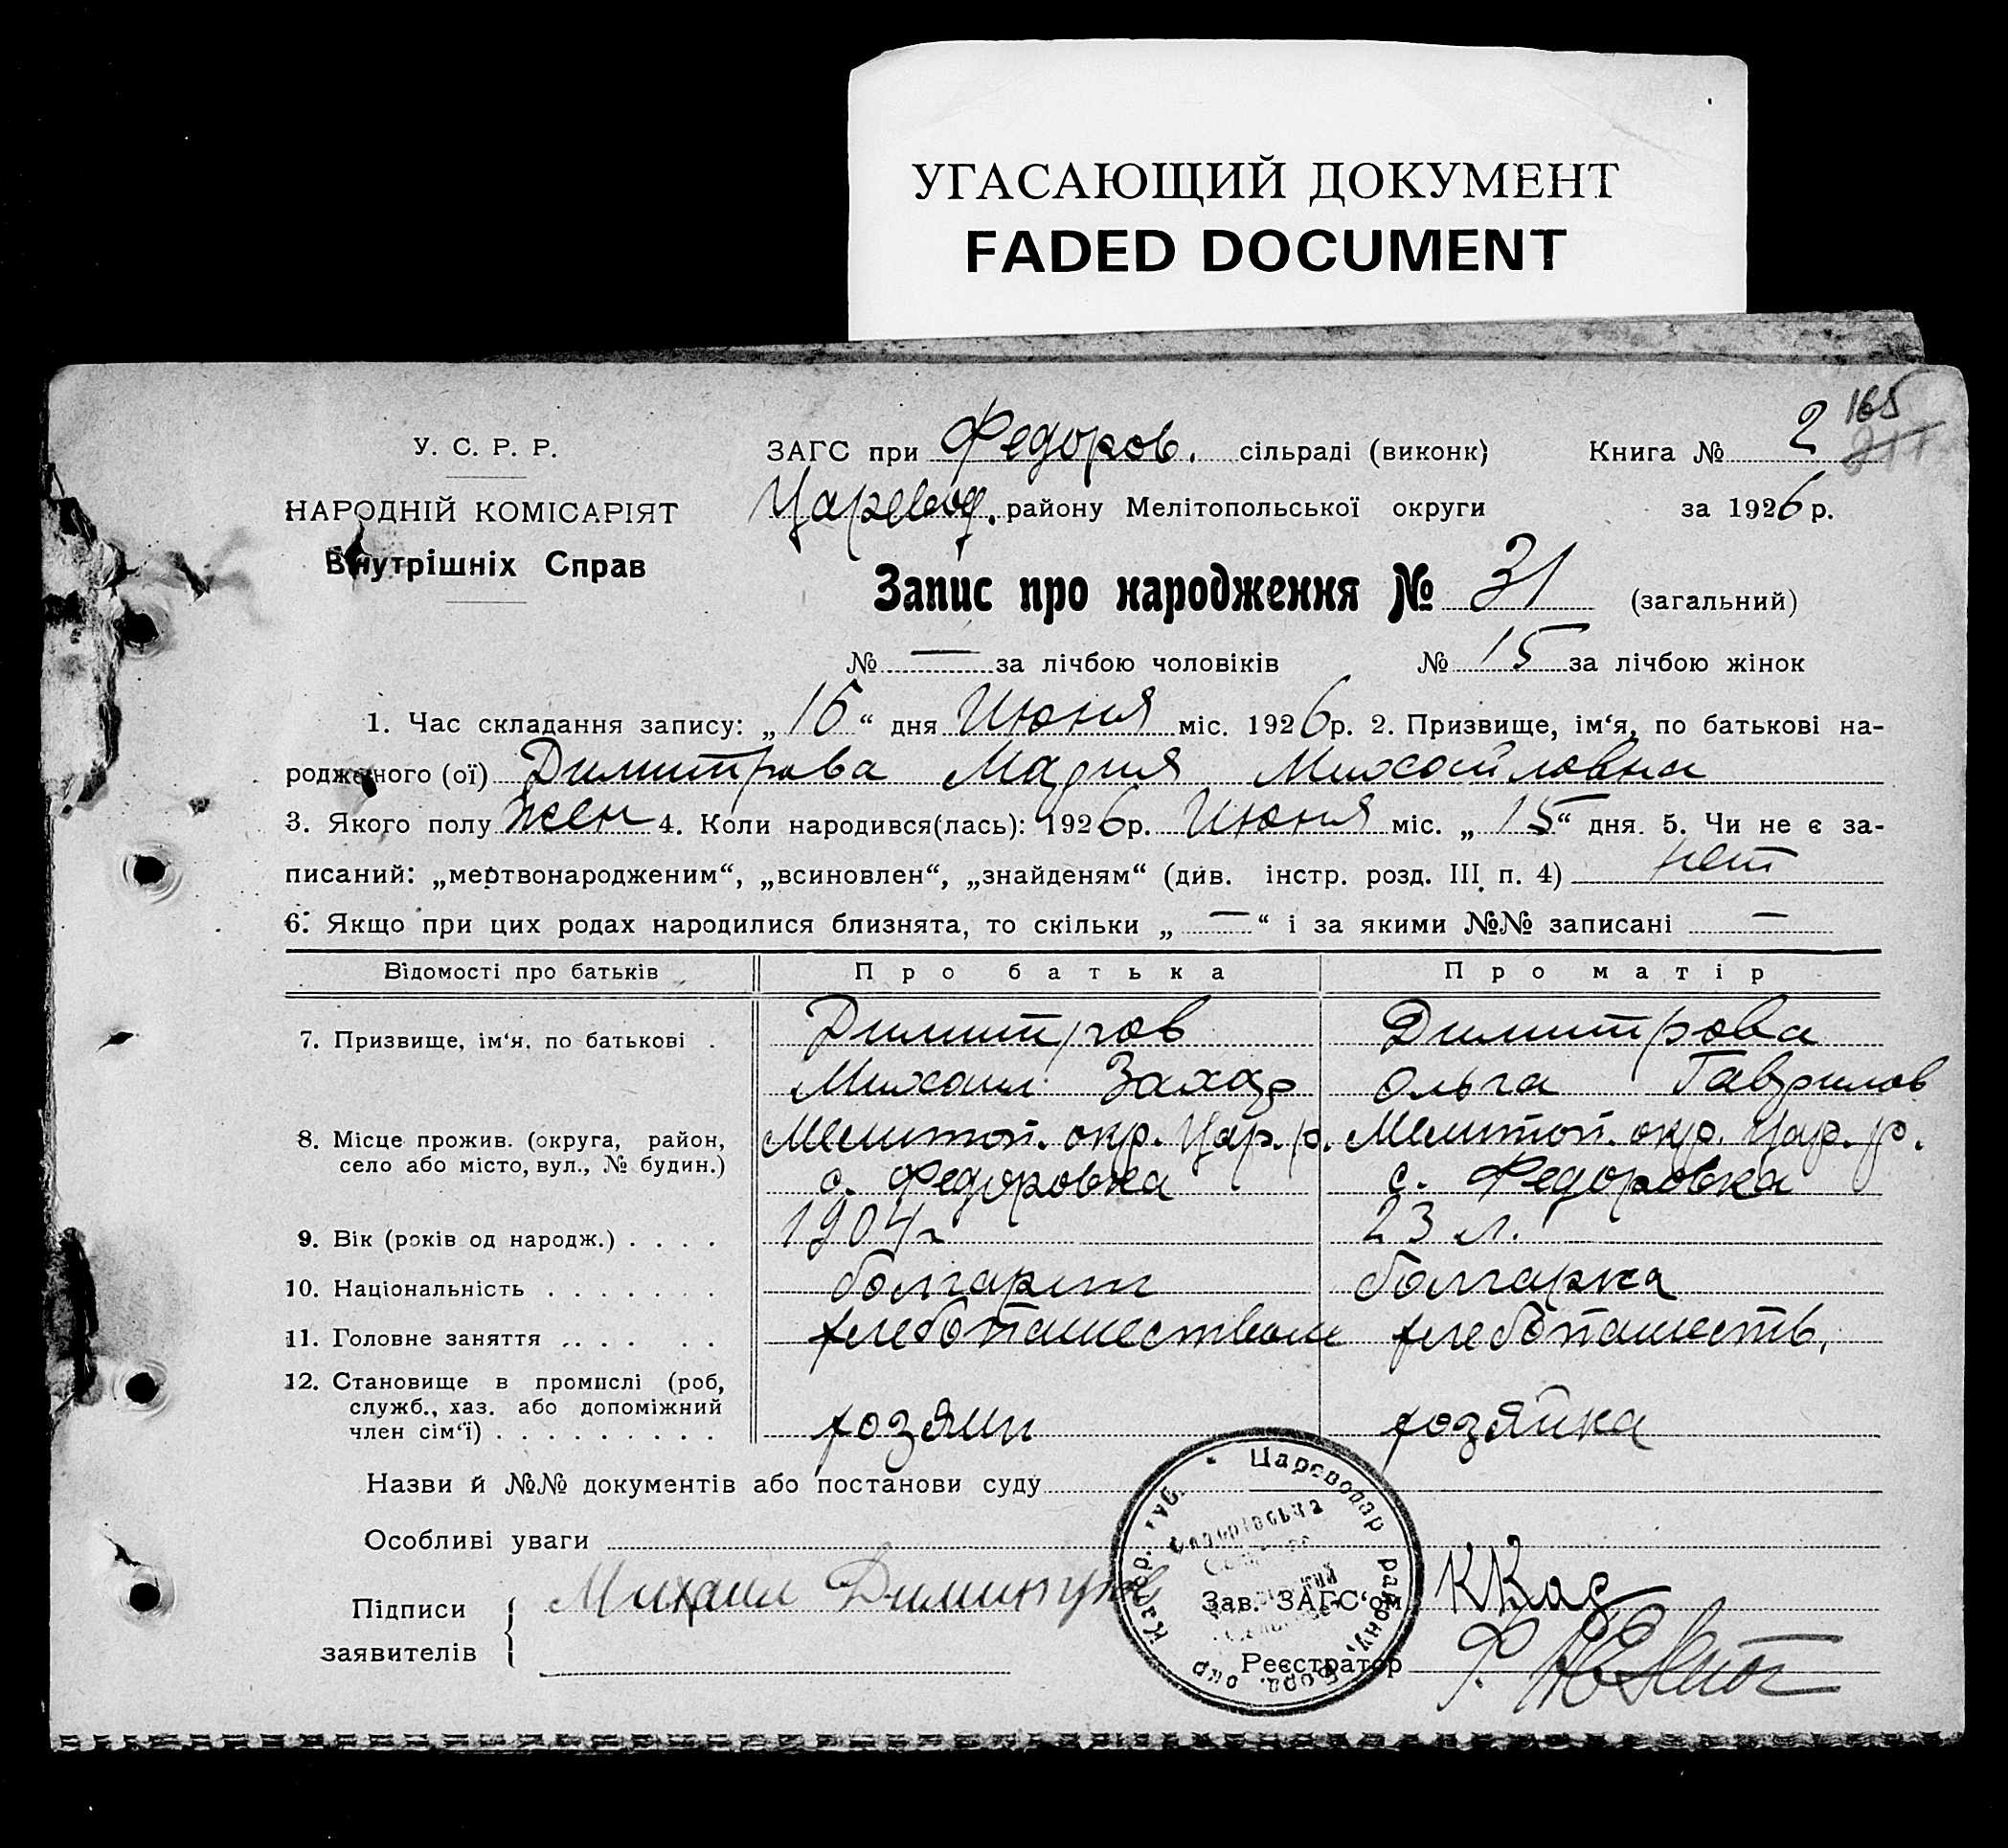 УГАСАЮЩИЙ ДОКУМЕНТ
FADED DOCUMENT
165
У. С. Р. Р.
ЗАГС при Федоров. сільраді (виконк)
Книга № 2
НАРОДНІЙ КОМІСАРІЯТ
Царевод. району Мелітопольської округи
за 1926 р.
Внутрішніх Справ
Запис про народження № 31 (загальний)
№ — за лічбою чоловіків № 15 за лічбою жінок
1. Час складання запису: „16“ дня Июня міс. 1926р. 2. Призвище, ім‘я, по батькові на-
родженого (ої) Димитрова Мария Михайловна
3. Якого полу жен 4. Коли народився(лась): 1926р. Июня міс. „15“ дня. 5. Чи не є за-
писаний: „мертвонародженим“, „всиновлен“, „знайденям“ (див. інстр. розд. III п. 4) нет
6. Якщо при цих родах народилися близнята, то скільки „—“ і за якими №№ записані —
Відомості про батьків Про батька Про матір
7. Призвище, ім‘я, по батькові . Димитров Димитрова
Михаил Захар Ольга Гаврилов
8. Місце прожив. (округа, район, Мелитоп. окр. Цар. р. Мелитоп. окр. Цар. р.
село або місто, вул., № будин.) с. Федоровка с. Федоровка
9. Вік (років од народж.) . . . . 1904г 23 л.
10. Національність . . . . . . . болгарин болгарка
11. Головне заняття . . . . . . хлебопашеством хлебопашеств.
12. Становище в промислі (роб,
служб., хаз. або допоміжний
член сім‘ї) . . . . . . . . . хозяин хозяйка
Назви й №№ документів або постанови суду
Особливі уваги
Підписи
заявителів
Михаил Димитров
Зав. ЗАГС‘ом
Реєстратор
Цареводар району, Корд. окр Катер. губ.